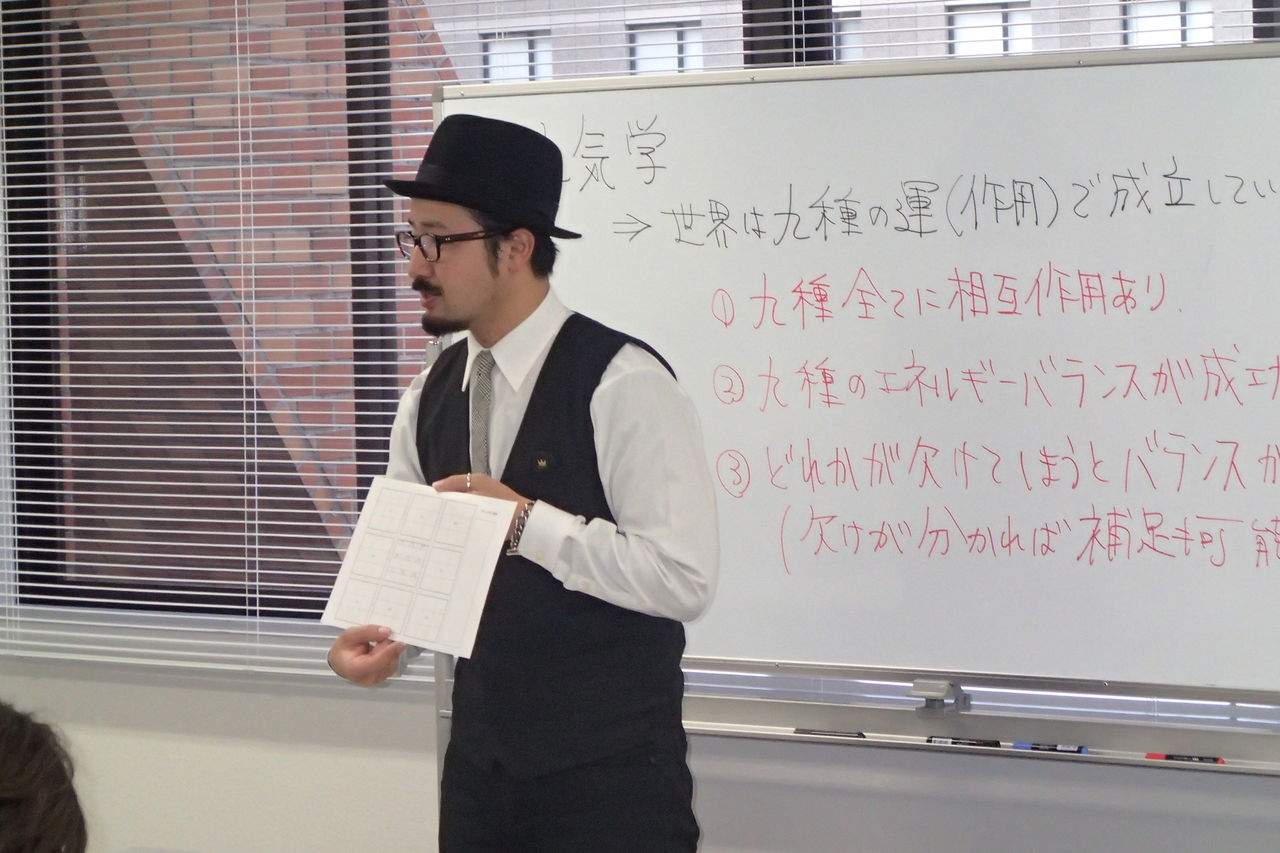 気学
⇒ 世界は九種の運(作用)で成立してい
① 九種全てに相互作用あり.
② 九種のエネルギーバランスが成立
③ どれかが欠けてしまうとバランスが
(欠けが分かれば補足も可能